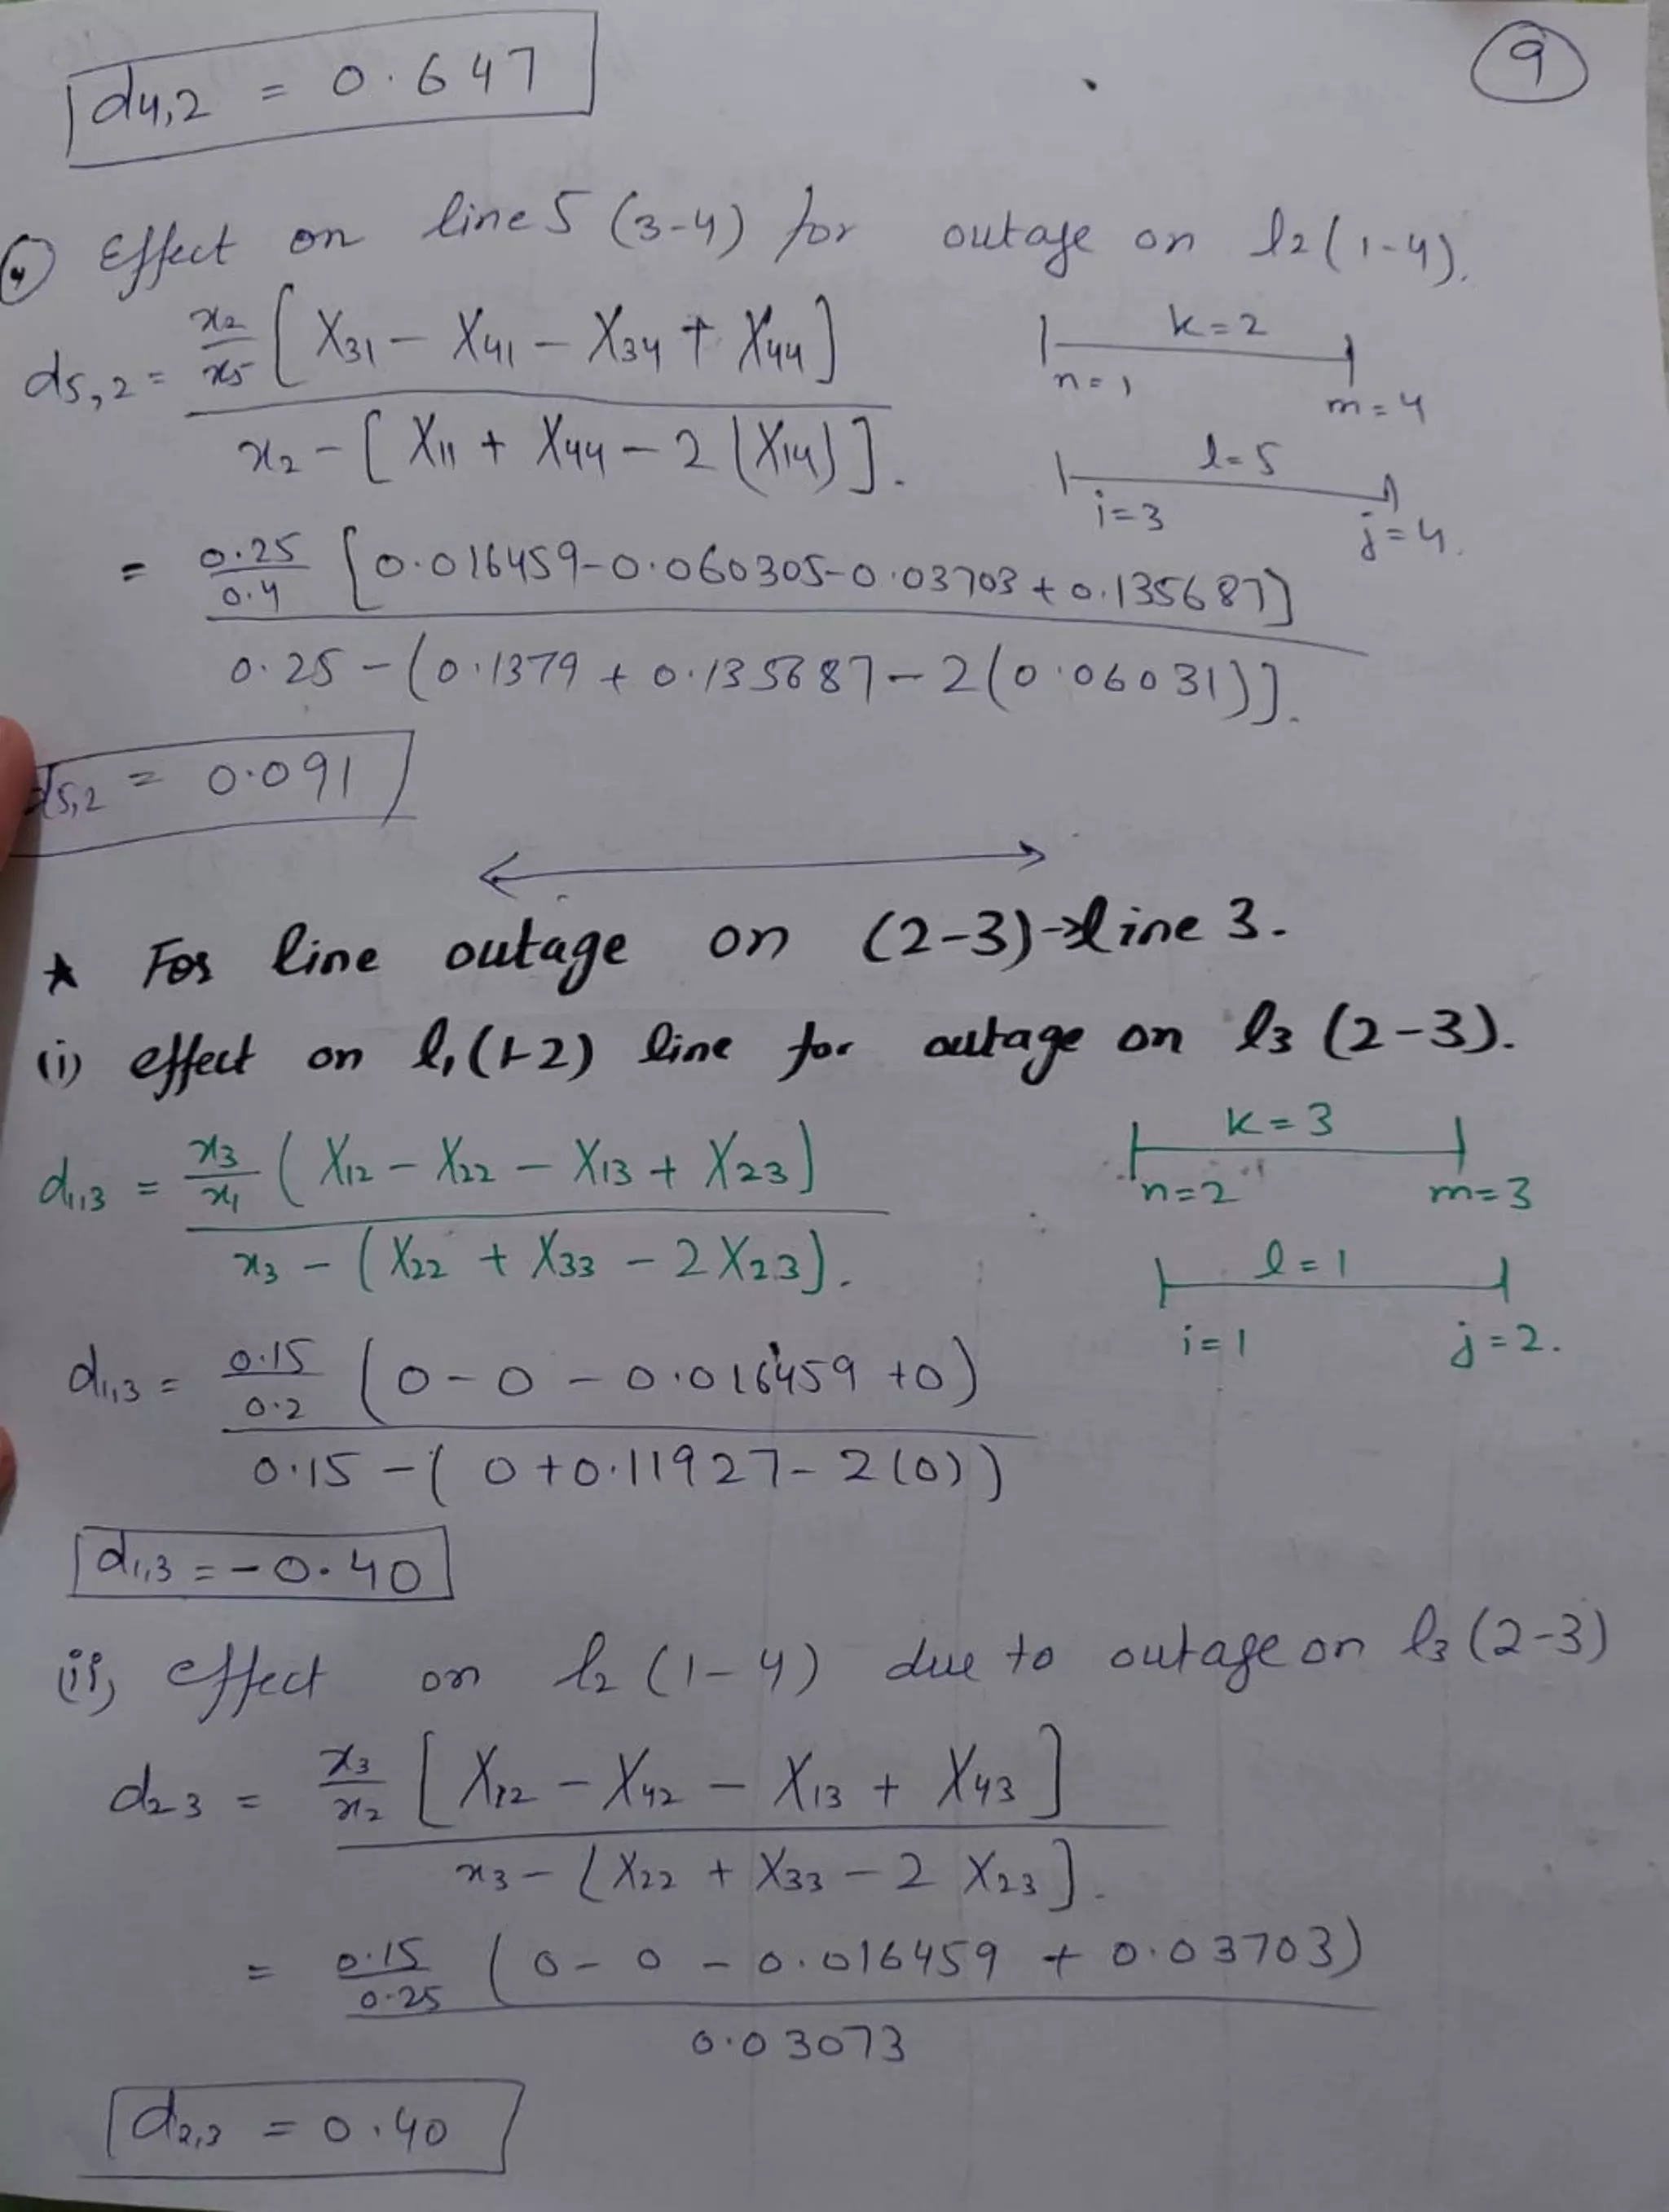 9
d4,2 = 0.647
4) Effect on line 5 (3-4) for outage on l2 (1-4).
d5,2 = x2/x5 [X31 - X41 - X34 + X44] / x2 - [X11 + X44 - 2(X14)].
k=2
n=1 m=4
l=5
i=3 j=4.
= 0.25/0.4 [0.016459-0.060305-0.03703+0.135687] / 0.25-(0.1379+0.135687-2(0.06031)].
d5,2 = 0.091
★ For line outage on (2-3)→line 3.
(i) effect on l1(1-2) line for outage on l3 (2-3).
d1,3 = x3/x1 (X12 - X22 - X13 + X23) / x3 - (X22 + X33 - 2X23).
k=3
n=2 m=3
l=1
i=1 j=2.
d1,3 = 0.15/0.2 (0-0-0.016459+0) / 0.15-(0+0.11927-2(0))
d1,3 = -0.40
(ii) effect on l2 (1-4) due to outage on l3 (2-3)
d23 = x3/x2 [X12 - X42 - X13 + X43] / x3 - [X22 + X33 - 2 X23].
= 0.15/0.25 (0-0-0.016459 + 0.03703) / 0.03073
d2,3 = 0.40